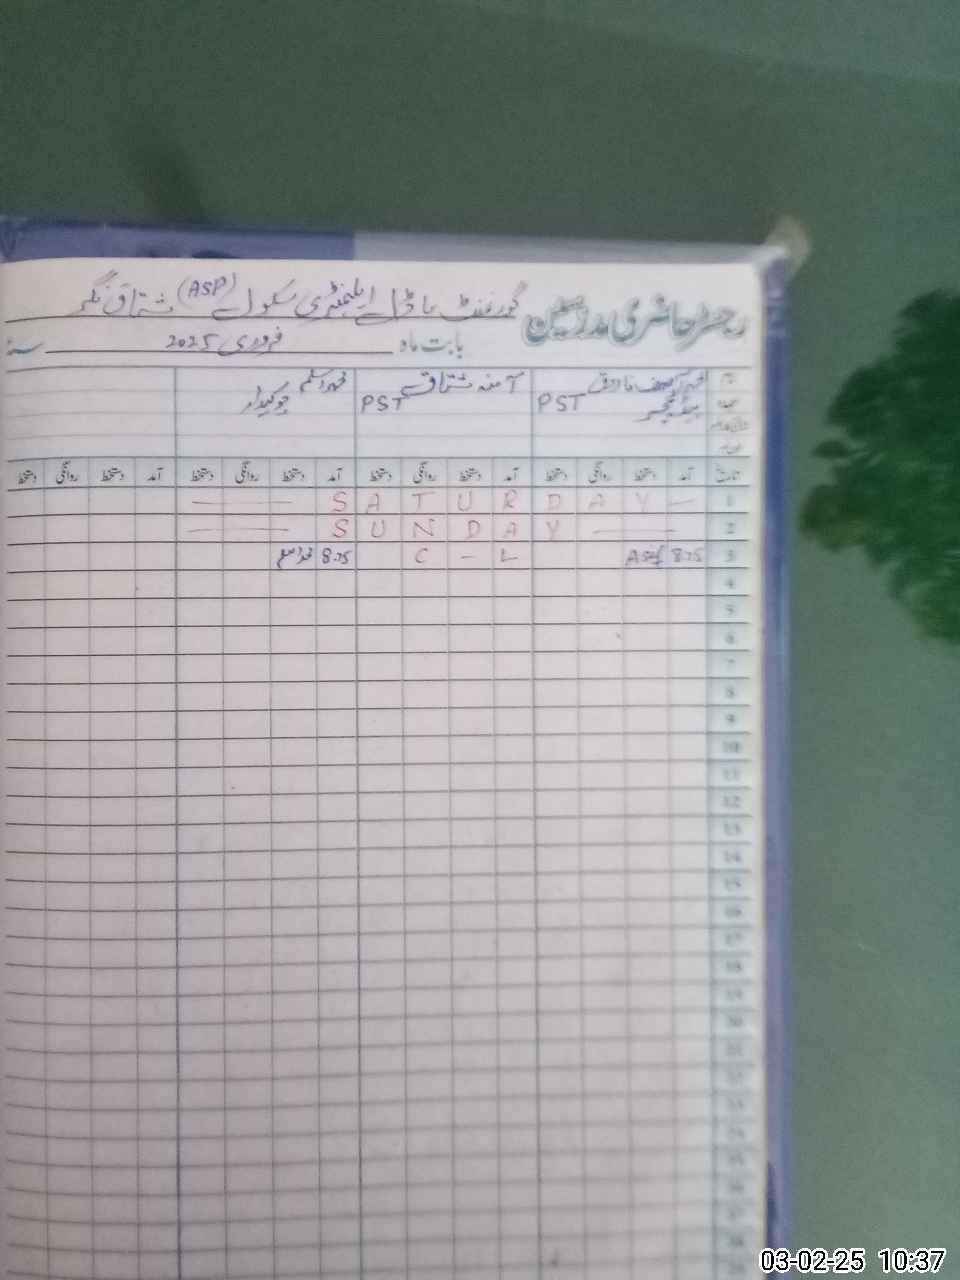 رجسٹر حاضری مدرسین گورنمنٹ ماڈل ایلیمنٹری سکول (ASP) مشتاق نگر
بابت ماہ فروری 2025 سنہ
نام محمد آصف فاروق آمنہ مشتاق محمد اسلم
عہدہ ہیڈ ٹیچر PST PST چوکیدار
تاریخ آمد دستخط روانگی دستخط آمد دستخط روانگی دستخط آمد دستخط روانگی دستخط آمد دستخط روانگی دستخط
1 S A T U R D A Y
2 S U N D A Y
3 8.25 Asif C - L 8.25
4
5
6
7
8
9
10
11
12
13
14
15
16
17
18
19
20
03-02-25 10:37